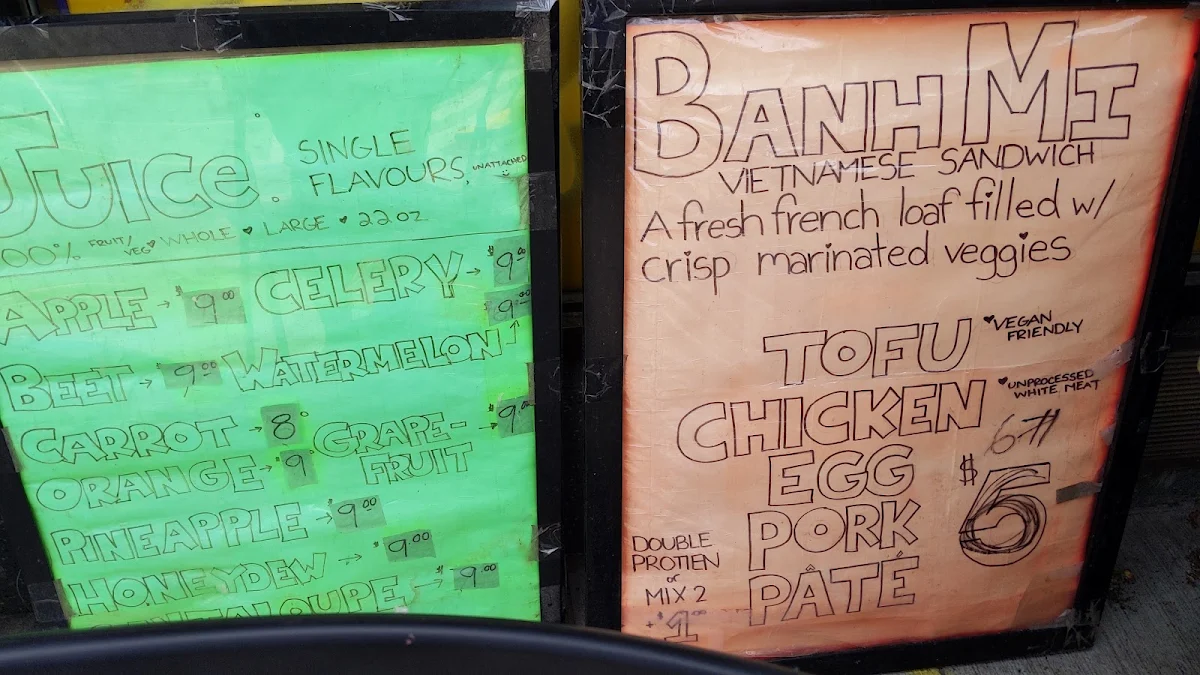 Juice.
SINGLE
FLAVOURS,
UNATTACHED
100% FRUIT/
VEG WHOLE ♥ LARGE ♥ 22 oz
APPLE → $9.00
CELERY → $9.00
BEET → $9.00
WATERMELON $9.00
CARROT → 8
GRAPE-
FRUIT → $9.00
ORANGE → 9
PINEAPPLE → $9.00
HONEYDEW → $9.00
CANTALOUPE → $9.00
BANH MI
VIETNAMESE SANDWICH
A fresh french loaf filled w/
crisp marinated veggies
TOFU ♥ VEGAN
FRIENDLY
CHICKEN ♥ UNPROCESSED
WHITE MEAT
EGG
PORK
PÂTÉ
$6
DOUBLE
PROTIEN
or
MIX 2